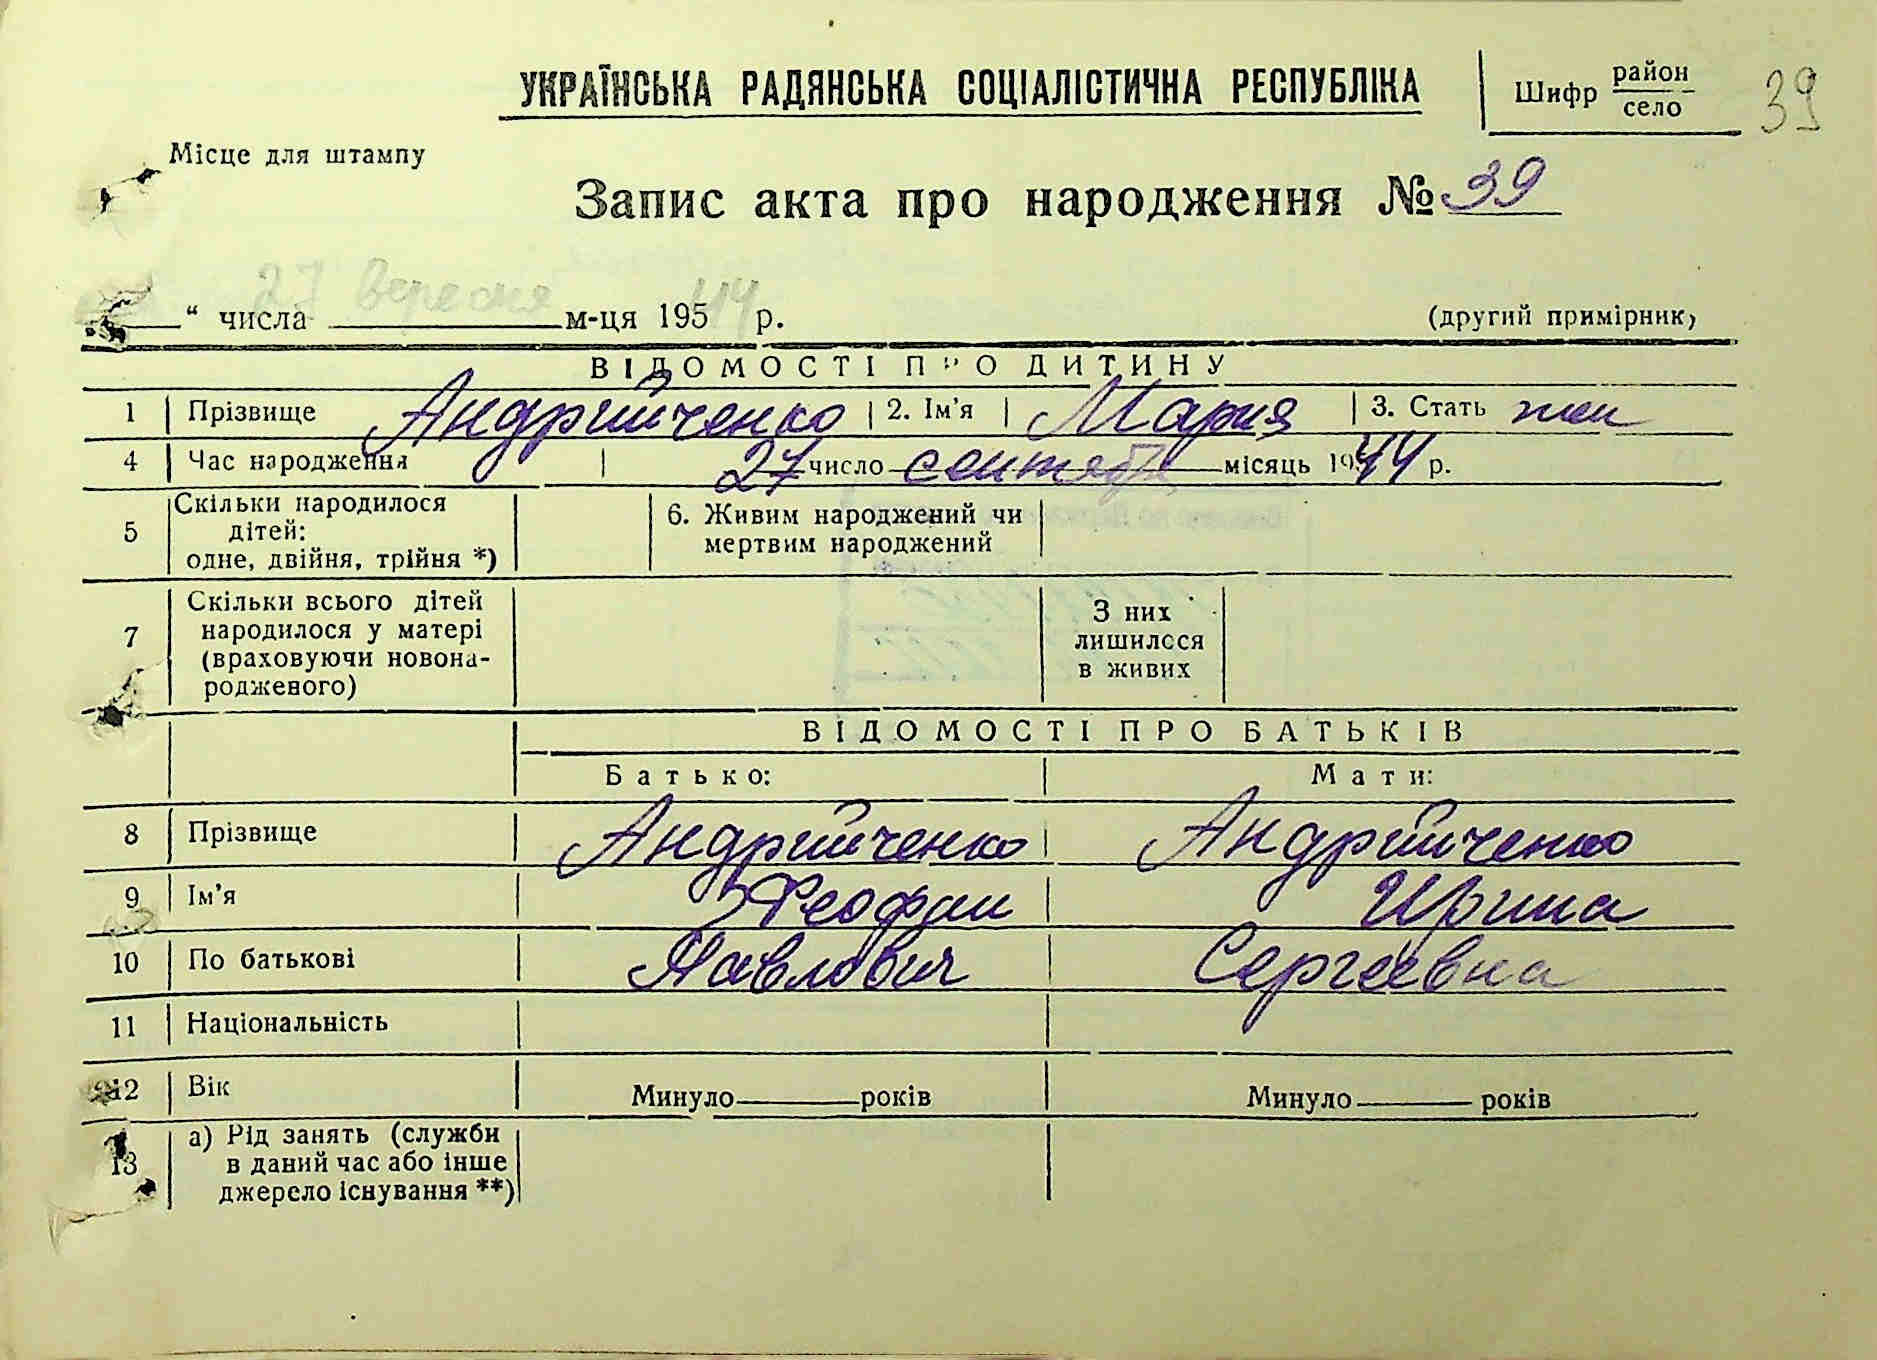 УКРАЇНСЬКА РАДЯНСЬКА СОЦІАЛІСТИЧНА РЕСПУБЛІКА
Шифр район
село
39
Місце для штампу
Запис акта про народження № 39
27 вересня 44
“ числа м-ця 195 р.
(другий примірник)
ВІДОМОСТІ ПРО ДИТИНУ
1 Прізвище Андрийченко 2. Ім’я Мария 3. Стать жен
4 Час народження 27 число сентября місяць 1944 р.
5 Скільки народилося дітей:
одне, двійня, трійня *)
6. Живим народжений чи
мертвим народжений
7 Скільки всього дітей
народилося у матері
(враховуючи новона-
родженого)
З них
лишилося
в живих
ВІДОМОСТІ ПРО БАТЬКІВ
Батько: Мати:
8 Прізвище Андрийченко Андрийченко
9 Ім’я Феофан Ирина
10 По батькові Павлович Сергеевна
11 Національність
12 Вік Минуло років Минуло років
13 а) Рід занять (служби
в даний час або інше
джерело існування **)